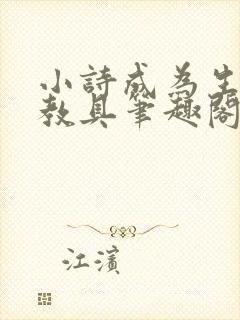 小詩成為生
教具筆趣閣
江濱